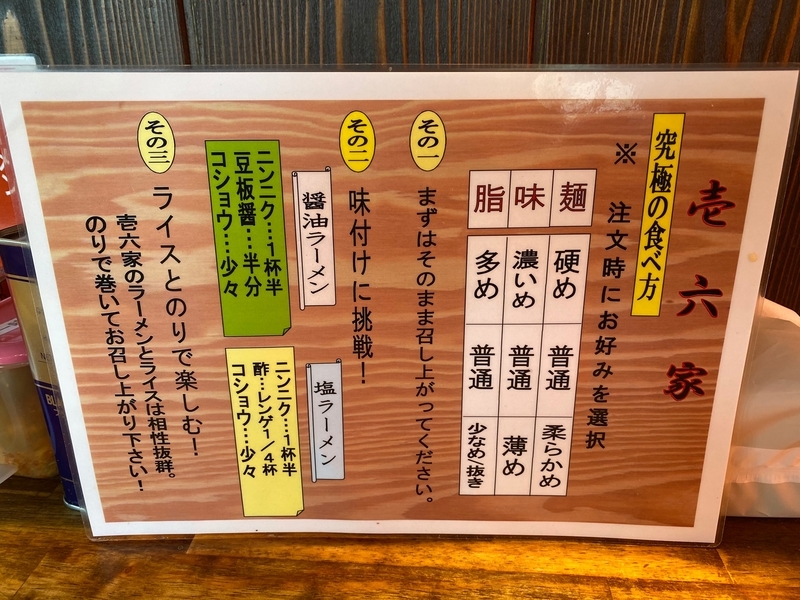 壱六家
究極の食べ方
※ 注文時にお好みを選択
麺 硬め 普通 柔らかめ
味 濃いめ 普通 薄め
脂 多め 普通 少なめ/抜き
その一
まずはそのまま召し上がってください。
その二
味付けに挑戦！
醤油ラーメン
ニンニク…1杯半
豆板醤…半分
コショウ…少々
塩ラーメン
ニンニク…1杯半
酢…レンゲ1/4杯
コショウ…少々
その三
ライスとのりで楽しむ！
壱六家のラーメンとライスは相性抜群。
のりで巻いてお召し上がり下さい！